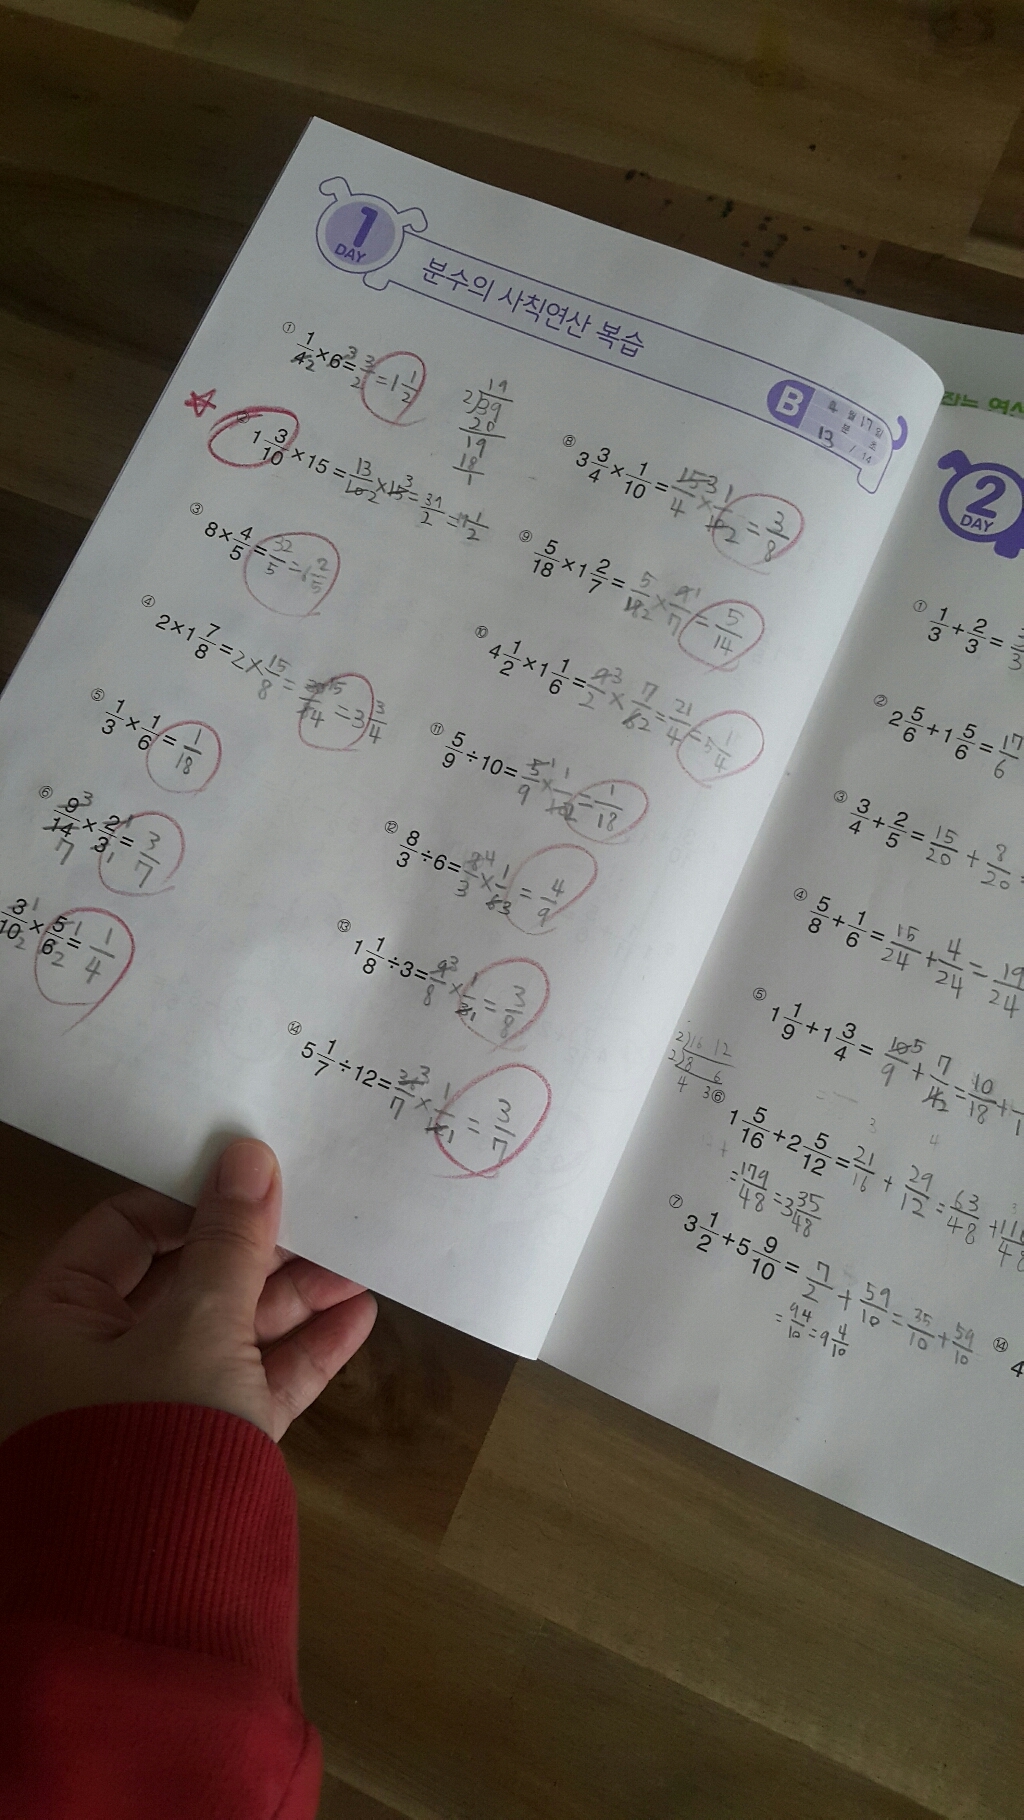 1
DAY
분수의 사칙연산 복습
B
4 월 17 일
분 초
13 / 14
① 1/4 2 × 6 3 = 3/2 = 1 1/2
19
2)39
20
19
18
1
② 1 3/10 × 15 = 13/10 2 × 15 3 = 39/2 = 19 1/2
③ 8 × 4/5 = 32/5 = 6 2/5
④ 2 × 1 7/8 = 2 × 15/8 = 30/8 15/4 = 3 3/4
⑤ 1/3 × 1/6 = 1/18
⑥ 9/14 3 7 × 2/3 1 1 = 3/7
3/10 1 2 × 5/6 1 2 = 1/4
⑧ 3 3/4 × 1/10 = 15/4 3 × 1/10 2 = 3/8
⑨ 5/18 × 1 2/7 = 5/18 2 × 9/7 1 = 5/14
⑩ 4 1/2 × 1 1/6 = 9/2 3 × 7/6 2 = 21/4 = 5 1/4
⑪ 5/9 ÷ 10 = 5/9 1 × 1/10 2 = 1/18
⑫ 8/3 ÷ 6 = 8/3 4 × 1/6 3 = 4/9
⑬ 1 1/8 ÷ 3 = 9/8 3 × 1/3 1 = 3/8
⑭ 5 1/7 ÷ 12 = 36/7 3 × 1/12 1 = 3/7
2
DAY
① 1/3 + 2/3 =
② 2 5/6 + 1 5/6 = 17/6
③ 3/4 + 2/5 = 15/20 + 8/20 =
④ 5/8 + 1/6 = 15/24 + 4/24 = 19/24
⑤ 1 1/9 + 1 3/4 = 10/9 5 + 7/4 2 = 10/18 +
2)16 12
2)8 6
4 3
⑥ 1 5/16 + 2 5/12 = 21/16 + 29/12 = 63/48 + 116/48
= 179/48 = 3 35/48
⑦ 3 1/2 + 5 9/10 = 7/2 + 59/10 = 35/10 + 59/10
= 94/10 = 9 4/10
⑭ 4